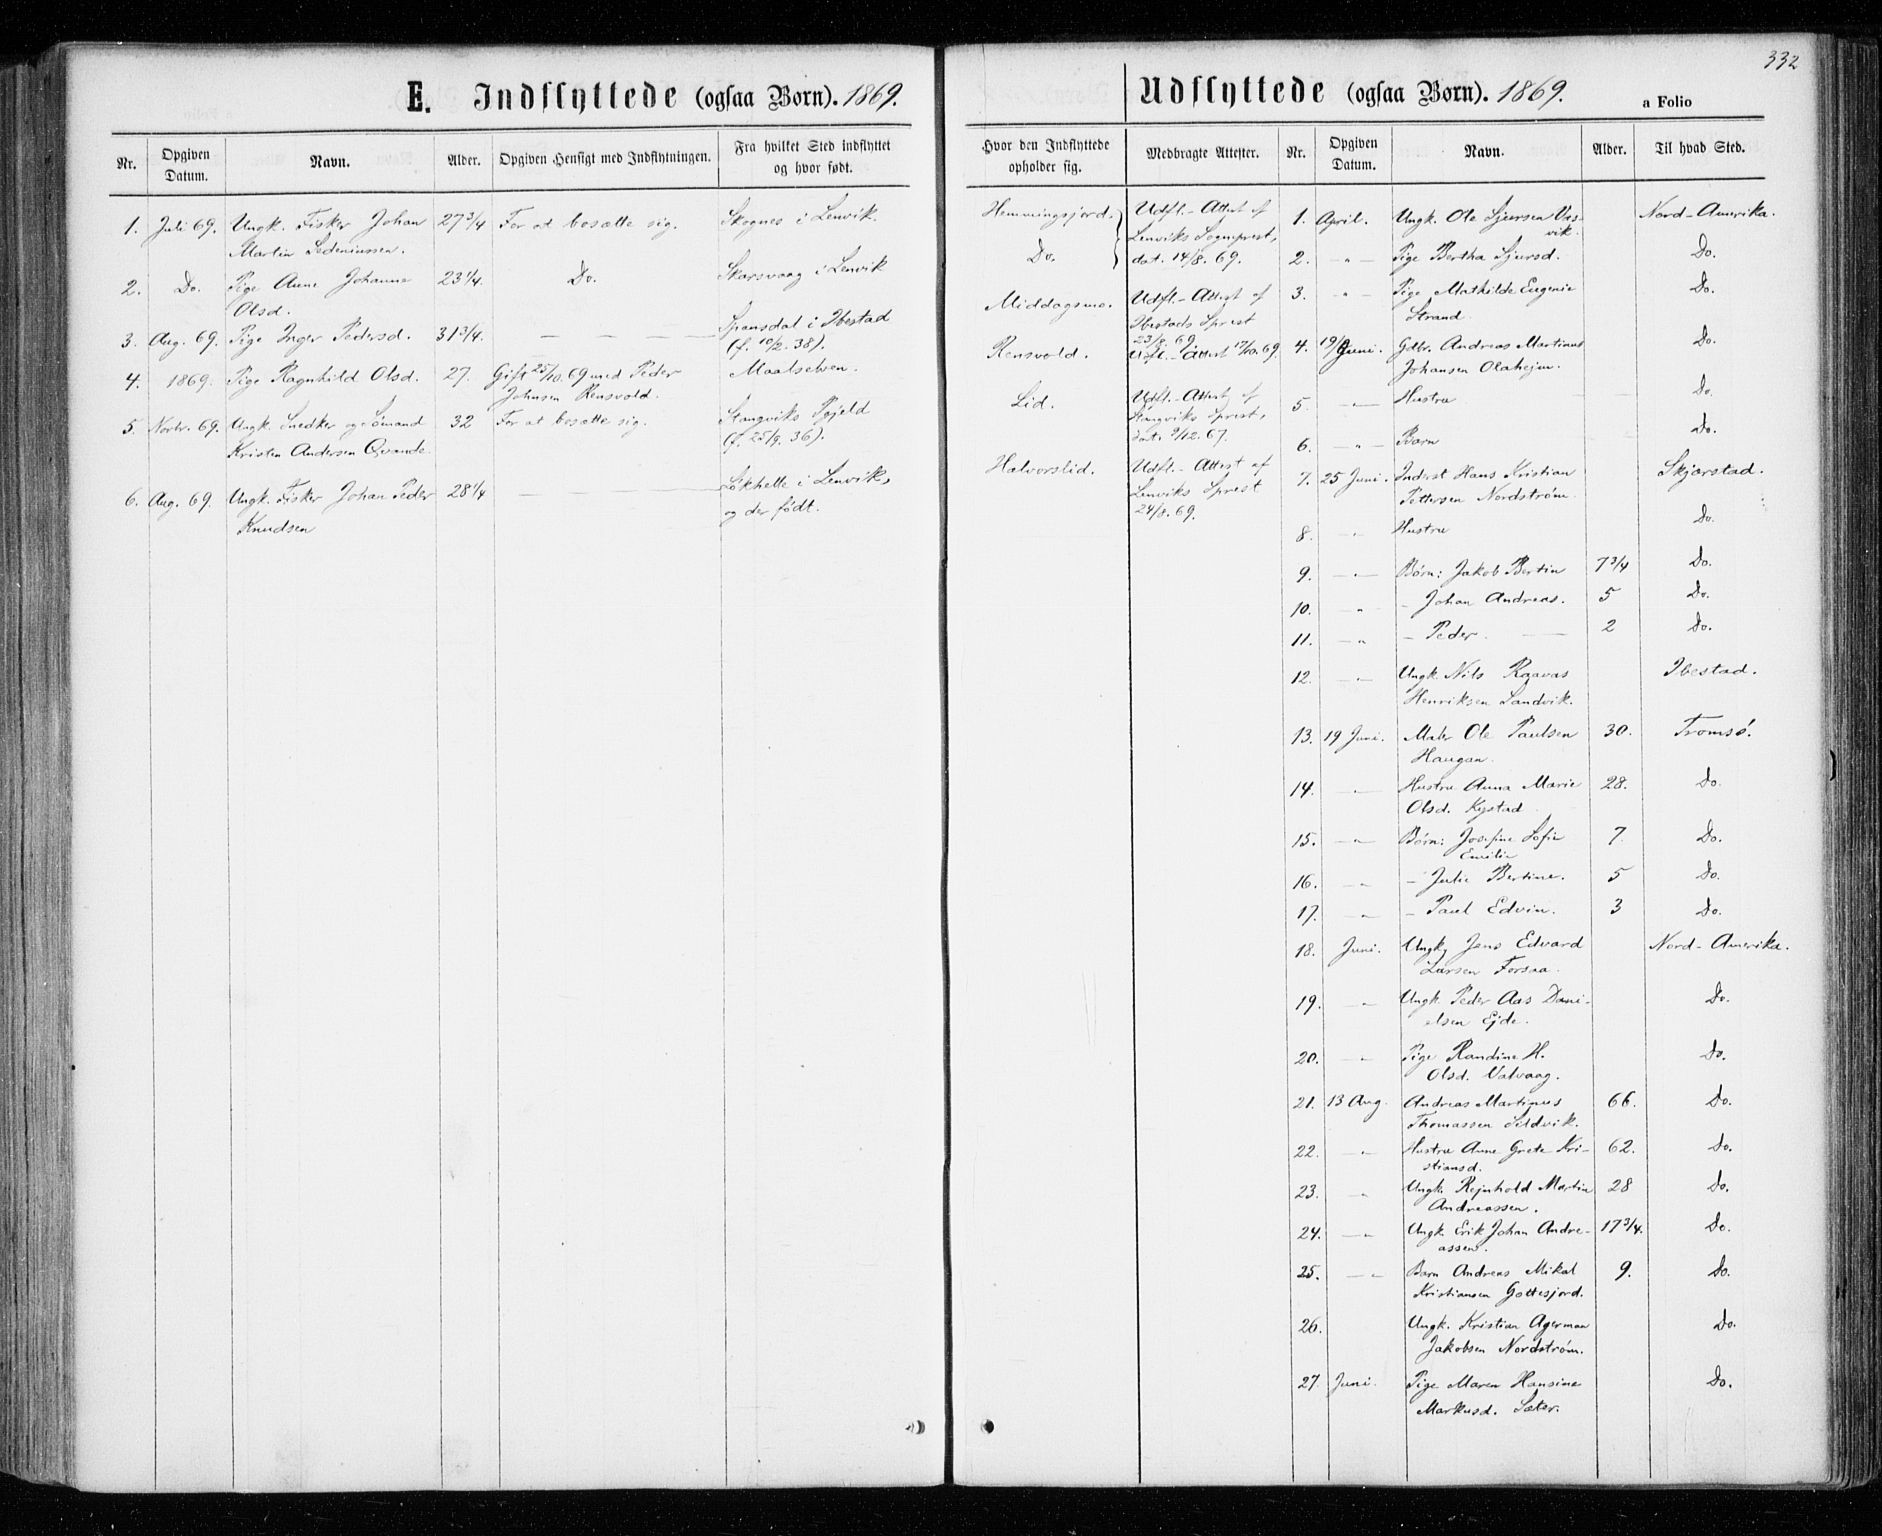 332
E. Indflyttede (ogsaa Børn). 1869.
Nr. Opgiven Datum. Navn. Alder. Opgiven Hensigt med Indflytningen. Fra hvilket Sted indflyttet og hvor født. Hvor den Indflyttede opholder sig. Medbragte Attester.
1. Juli 69. Ungk. Fisker Johan 27 3/4 For at bosætte sig. Skognes i Lenvik. Hemmingsjord. Udfl.-Attest af
Martin Sedeniussen. Lenviks Sogneprest,
dat. 14/8. 69.
2. Do. Pige Anne Johanna 23 1/4. Do. Skarsvaag i Lenvik Do.
Olsd.
3. Aug. 69. Pige Inger Pedersd. 31 3/4. — — — — Spansdal i Ibestad Middagsmo. Udfl.-Attest af
(f. 10/2. 38). Ibestads Sprest
23/8. 69.
4. 1869. Pige Ragnhild Olsd. 27. Gift 25/10. 69 med Peder Maalselven. Rensvold. Udfl.-Attest 17/10. 69
Johnsen Rensvold.
5. Novbr. 69. Ungk. Snedker og Sømand 32 For at bosætte sig. Stangviks Pgjeld Lid. Udfl.-Attest af
Kristen Andersen Qvande. (f. 25/9. 36). Stangviks Sprest,
dat. 9/12. 67.
6. Aug. 69. Ungk. Fisker Johan Peder 28 1/4 — — — Løkhelle i Lenvik, Halvorslid. Udfl.-Attest af
Knudsen og der født. Lenviks Sprest
24/8. 69.
Udflyttede (ogsaa Børn). 1869.
a Folio
Nr. Opgiven Datum. Navn. Alder. Til hvad Sted.
1. April. Ungk. Ole Sjursen Vas- Nord-Amerika.
vik.
2. — " — Pige Bertha Sjursd. Do.
3. — " — Pige Mathilde Eugenie Do.
Strand.
4. 19/ Juni. Gdbr. Andreas Martinus Do.
Johansen Olahejm.
5. — " — Hustru Do.
6. — " — Barn Do.
7. 25 Juni. Inderst Hans Kristian Skjærstad.
Pettersen Nordstrøm.
8. — " — Hustru Do.
9. — " — Børn: Jakob Bertin 7 3/4 Do.
10. — " — - Johan Andreas. 5 Do.
11. — " — - Peder. 2 Do.
12. — " — Ungk. Nils Ibestad.
Henriksen Sandvik.
13. 19 Juni. Maler Ole Paulsen 30. Tromsø.
Haugan.
14. — " — Hustru Anna Marie 28. Do.
Olsd. Kystad
15. — " — Børn: Josefine Sofie 7. Do.
Emilie
16. — " — - Julie Bertine. 5 Do.
17. — " — - Paul Edvin. 3 Do.
18. Juni. Ungk. Jens Edvard Nord-Amerika.
Larsen Forsaa.
19. — " — Ungk. Peder Aas Dani- Do.
elsen Ejde.
20. — " — Pige Randine H. Do.
Olsd. Valvaag.
21. 13 Aug. Andreas Martinus 66. Do.
Thomassen Sildvik.
22. — " — Hustru Anne Grete Kri- 62. Do.
stiansd.
23. — " — Ungk. Rejnhold Martin 28 Do.
Andreassen.
24. — " — Ungk. Erik Johan Andre- 17 3/4. Do.
assen.
25. — " — Barn Andreas Mikal 9. Do.
Kristiansen Gottesjord.
26. Ungk. Kristian Agerman Do.
Jakobsen Nordstrøm.
27. Juni. Pige Maren Hansine Do.
Markusd. Sæter.